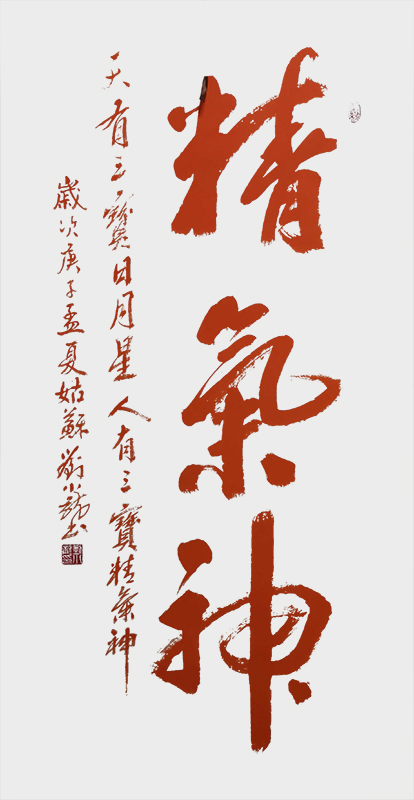 精氣神
天有三寶日月星人有三寶精氣神
歲次庚子孟夏姑蘇劉小龍书